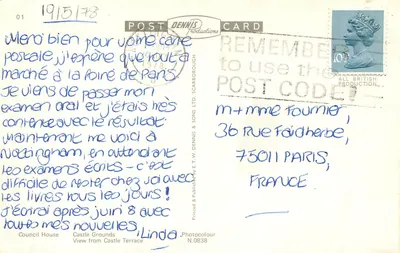 01
19/5/78
POST CARD
DENNIS
Productions
REMEMBER
to use the
POST CODE
10½P
ALL BRITISH
PRODUCTION
Merci bien pour votre carte
postale, j'espère que tout a
marché à la Foire de Paris.
Je viens de passer mon
examen oral et j'étais très
contente avec le résultat
Maintenant me voici à
Nottingham, en attendant
les examens écrits - c'est
difficile de rester chez soi avec
les livres tous les jours!
J'écrirai après juin 8 avec
toutes mes nouvelles,
Linda
M + Mme Fournier,
36 Rue Faidherbe,
75011 PARIS,
FRANCE
Printed & Published by E.T.W. DENNIS & SONS LTD. SCARBOROUGH
Council House Castle Grounds Photocolour
View from Castle Terrace N.0838